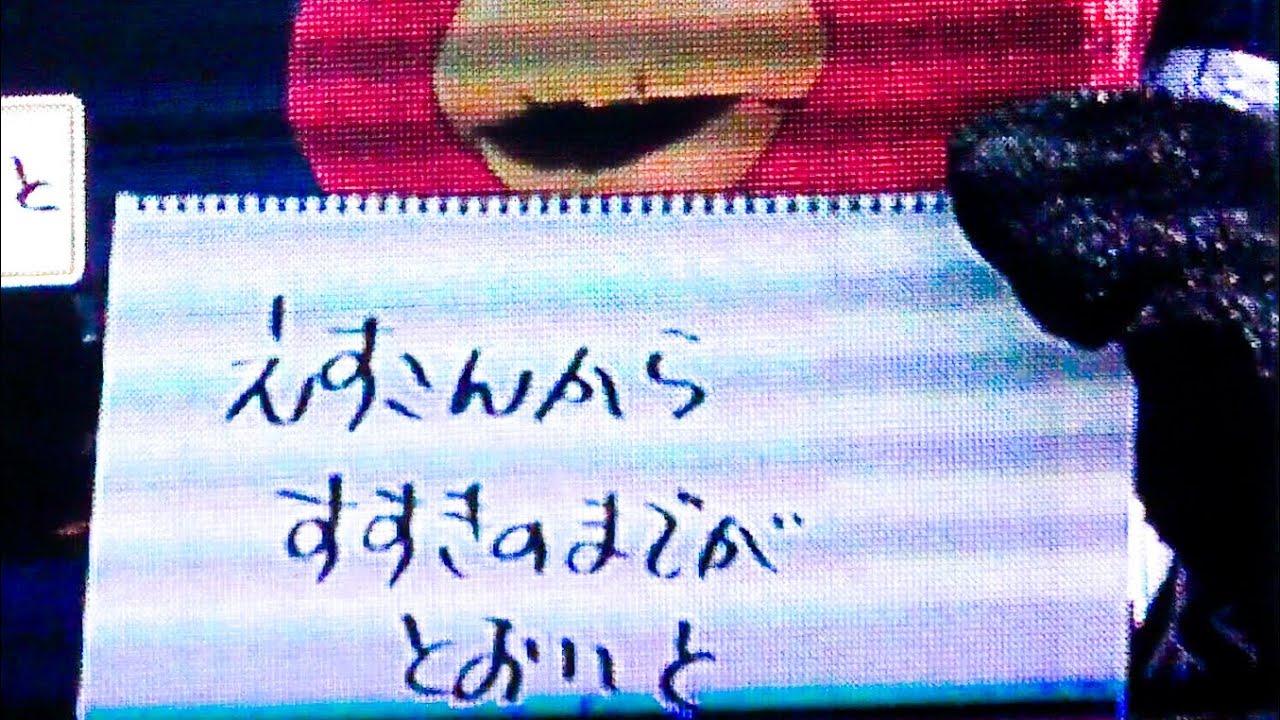 と
えすこんから
すすきのまでが
とおいと